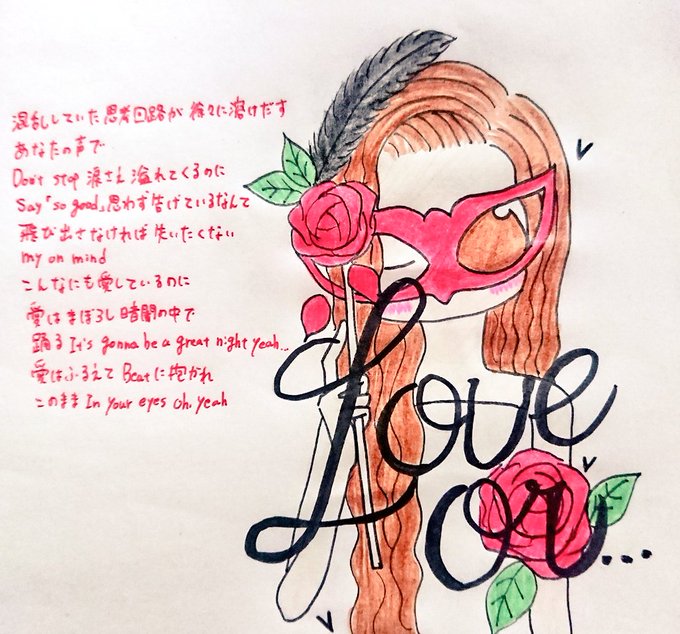 混乱していた思考回路が 徐々に溶けだす
あなたの声で
Don't stop 涙さえ 溢れてくるのに
Say「so good」思わず告げているなんて
飛び出さなければ 失いたくない
my on mind
こんなにも愛しているのに
愛はまぼろし 暗闇の中で
踊る It's gonna be a great night yeah...
愛はふるえて Beatに抱かれ
このまま In your eyes oh, yeah
Love
or...